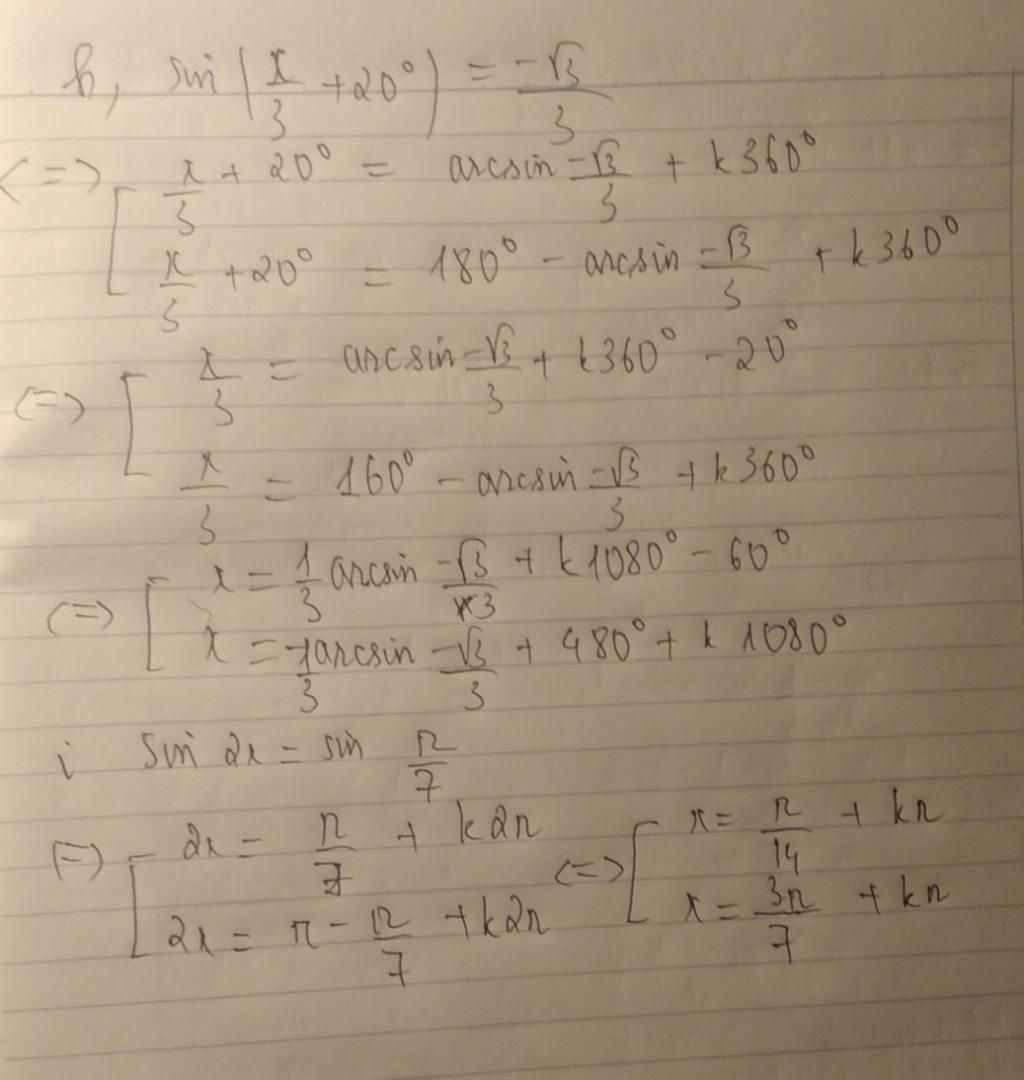 h, sin(x/3 + 20°) = -√3/3
<=> [ x/3 + 20° = arcsin -√3/3 + k360°
x/3 + 20° = 180° - arcsin -√3/3 + k360°
<=> [ x/3 = arcsin -√3/3 + k360° - 20°
x/3 = 160° - arcsin -√3/3 + k360°
<=> [ x = 1/3 arcsin -√3/3 + k1080° - 60°
x = -1/3 arcsin -√3/3 + 480° + k1080°
i sin 2x = sin π/7
<=> [ 2x = π/7 + k2π <=> [ x = π/14 + kπ
2x = π - π/7 + k2π x = 3π/7 + kπ